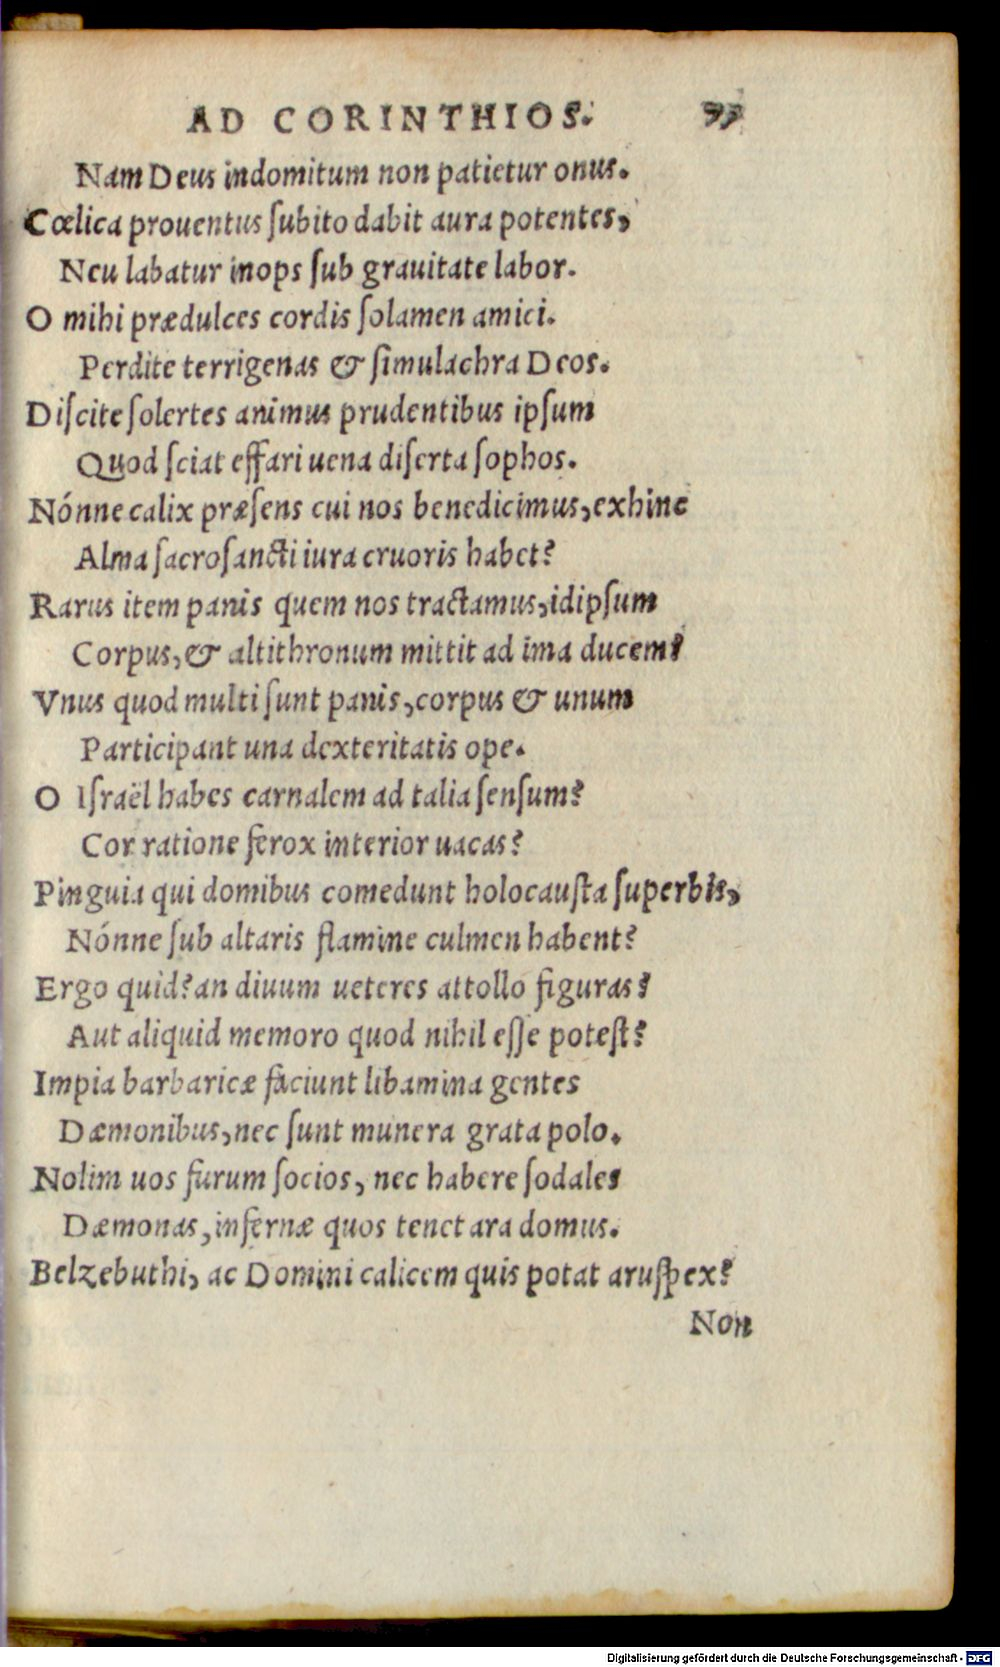 AD CORINTHIOS.
Nam Deus indomitum non patietur onus.
Cœlica prouentus ſubito dabit aura potentes,
Neu labatur inops ſub grauitate labor.
O mihi prædulces cordis ſolamen amici.
Perdite terrigenas & ſimulachra Deos.
Diſcite ſolertes animus prudentibus ipſum
Quod ſciat effari uena diſerta ſophos.
Nónne calix præſens cui nos benedicimus, exhinc
Alma ſacroſancti iura cruoris habet?
Rarus item panis quem nos tractamus, idipſum
Corpus, & altithronum mittit ad ima ducem?
Vnus quod multi ſunt panis, corpus & unum
Participant una dexteritatis ope.
O Iſraël habes carnalem ad talia ſenſum?
Cor ratione ferox interior uacas?
Pinguia qui domibus comedunt holocauſta ſuperbis,
Nónne ſub altaris flamine culmen habent?
Ergo quid? an diuum ueteres attollo figuras?
Aut aliquid memoro quod nihil eſſe poteſt?
Impia barbaricæ faciunt libamina gentes
Dæmonibus, nec ſunt munera grata polo.
Nolim uos furum ſocios, nec habere ſodales
Dæmonas, infernæ quos tenet ara domus.
Belzebuthi, ac Domini calicem quis potat aruſpex?
Non
Digitalisierung gefördert durch die Deutsche Forschungsgemeinschaft - DFG